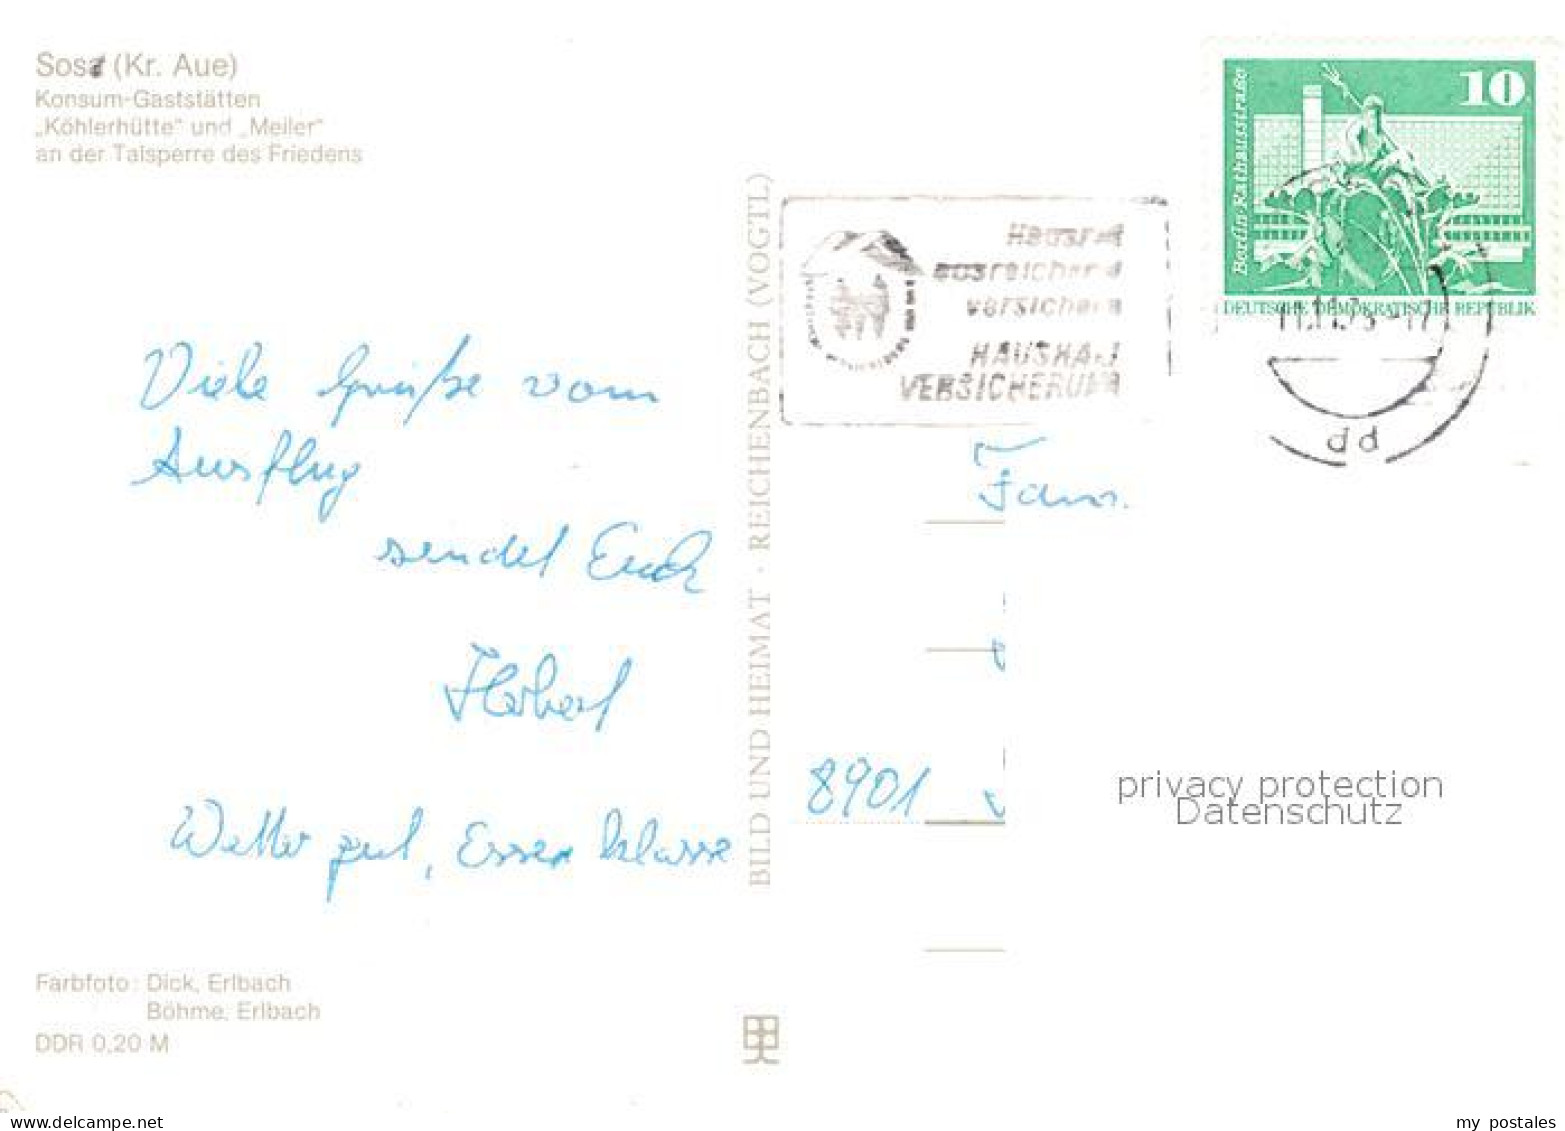 Sosa (Kr. Aue)
Konsum-Gaststätten
„Köhlerhütte“ und „Meiler“
an der Talsperre des Friedens
Viele Grüße vom
Ausflug
sendet Euch
Wetter gut, Essen klasse
Farbfoto: Dick, Erlbach
Böhme, Erlbach
DDR 0,20 M
BILD UND HEIMAT · REICHENBACH (VOGTL)
Hausrat
ausreichend
versichern
HAUSHALT
VERSICHERUNG
10
Berlin·Rathausstraße
DEUTSCHE DEMOKRATISCHE REPUBLIK
Fam.
8901
privacy protection
Datenschutz
www.delcampe.net
my_postales